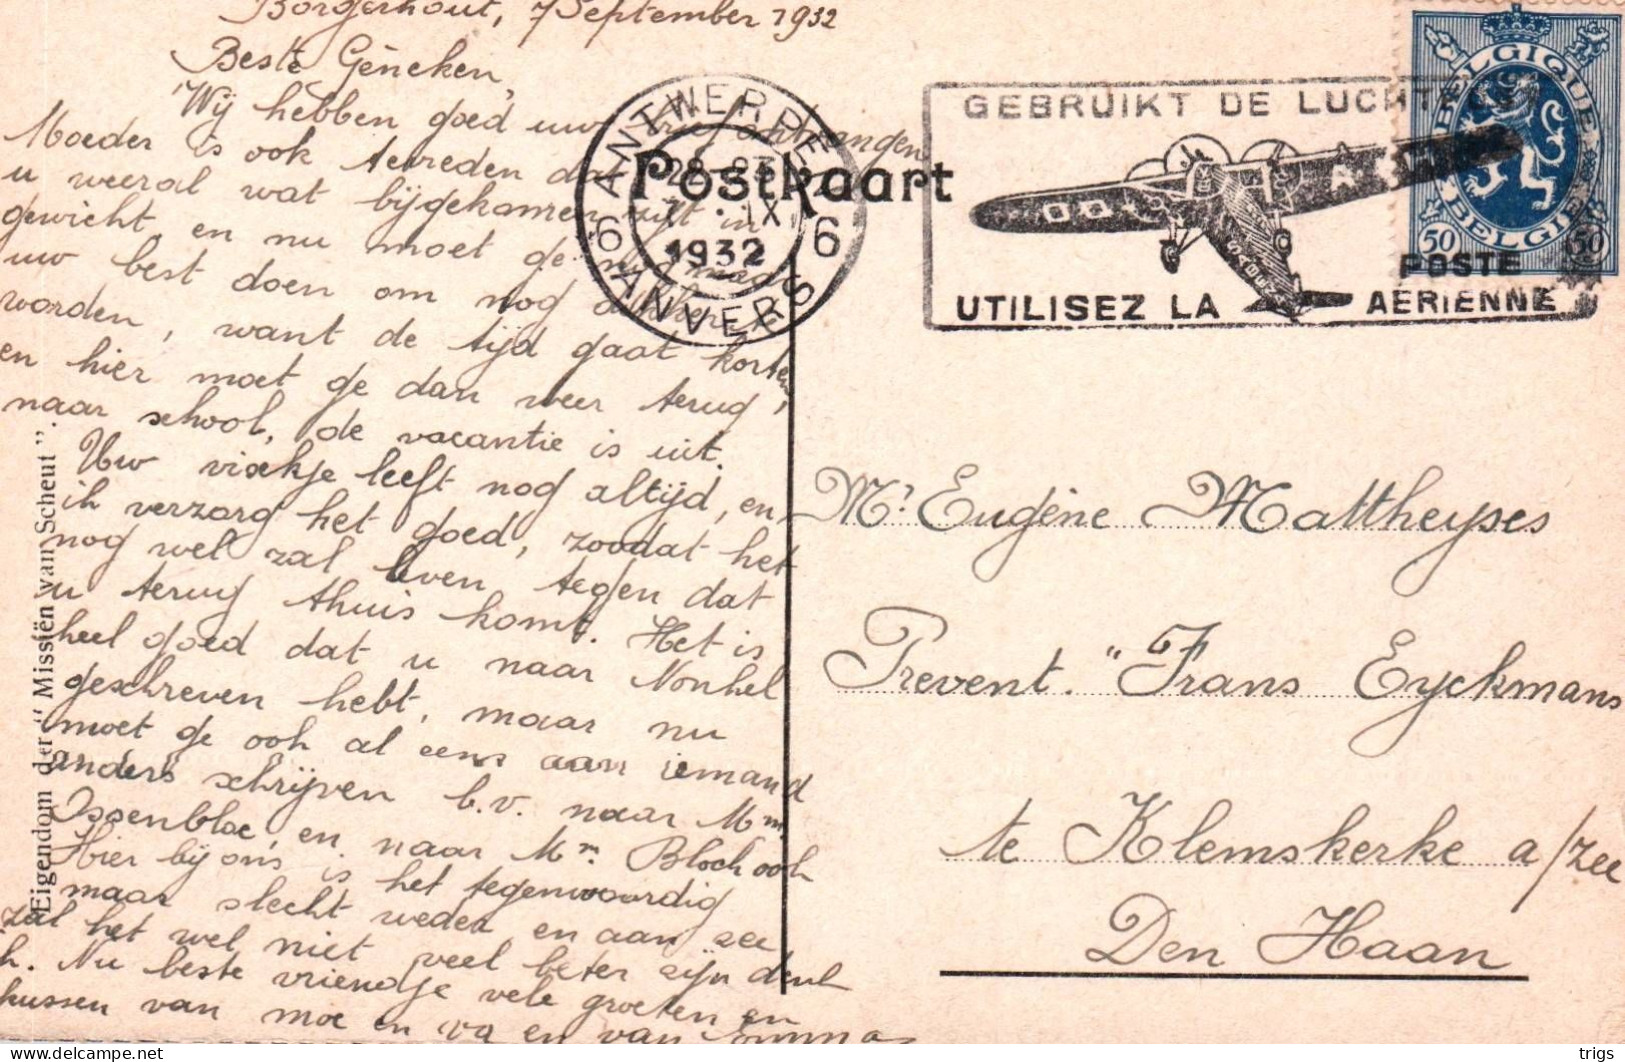 Borgerhout, 7 September 1932
Beste Gèneken,
Wij hebben goed uw brief ontvangen
Moeder is ook tevreden dat
u weeral wat bijgekomen zijt in
gewicht, en nu moet ge nog maar
uw best doen om nog dikker te
worden, want de tijd gaat korten,
en hier moet ge dan weer terug
naar school, de vacantie is uit.
Uw vischje leeft nog altijd, en
ik verzorg het goed, zoodat het
nog wel zal leven tegen dat
u terug thuis komt. Het is
heel goed dat u naar Nonkel
geschreven hebt, maar nu
moet ge ook al eens aan iemand
anders schrijven b.v. naar Mm
Issenbloc, en naar Mm. Bloch ook
Hier bij ons is het tegenwoordig
maar slecht weder en aan zee
zal het wel niet veel beter zijn denk
ik. Nu beste vriendje vele groeten en
kussen van moe en va en van Emma
Postkaart
ANTWERPEN
6 6
1932
ANVERS
GEBRUIKT DE LUCHTPOST
UTILISEZ LA POSTE AERIENNE
BELGIQUE
BELGIE
50 50
Mr. Eugène Mattheyses
Prevent. "Frans Eyckmans
te Klemskerke a/zee
Den Haan
Eigendom der "Missiën van Scheut".
delcampe.net
trigs